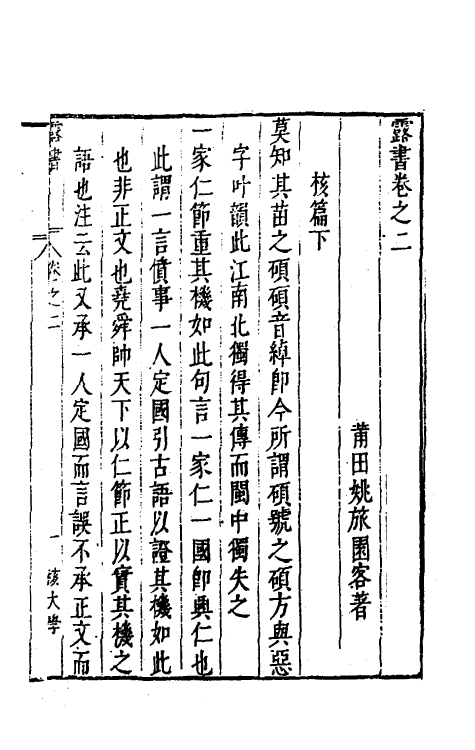 露書卷之二
莆田姚旅園客著
核篇下
莫知其苗之碩碩音綽卽今所謂碩號之碩方與惡
字叶韻此江南北獨得其傳而閩中獨失之
一家仁節重其機如此句言一家仁一國卽興仁也
此謂一言僨事一人定國引古語以證其機如此
也非正文也堯舜帥天下以仁節正以實其機之
語也注云此又承一人定國而言誤不承正文而
露書
卷之二
一
核大學